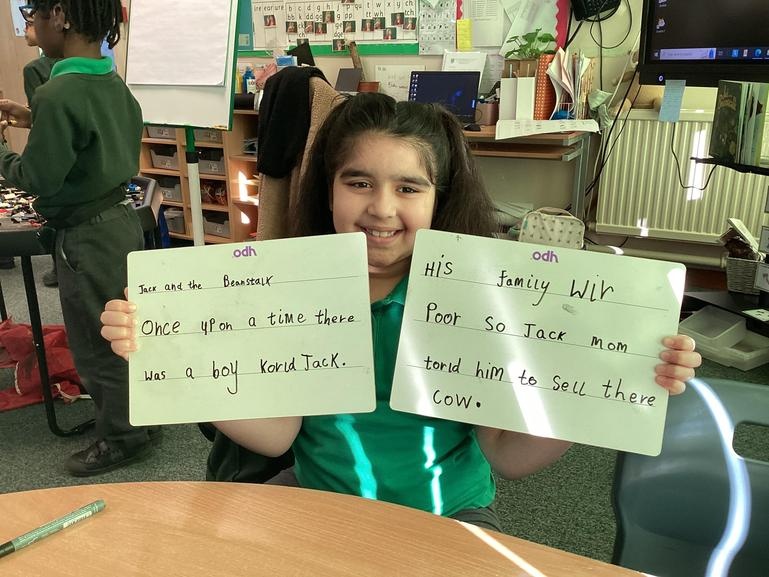 odh
Jack and the Beanstalk
Once upon a time there
was a boy Korld Jack.
odh
His family Wir
Poor so Jack mom
torld him to Sell there
cow.